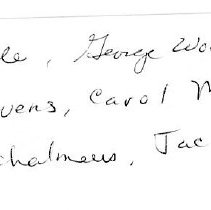 le, George Wo
vens, Carol M
Chalmers, Jac